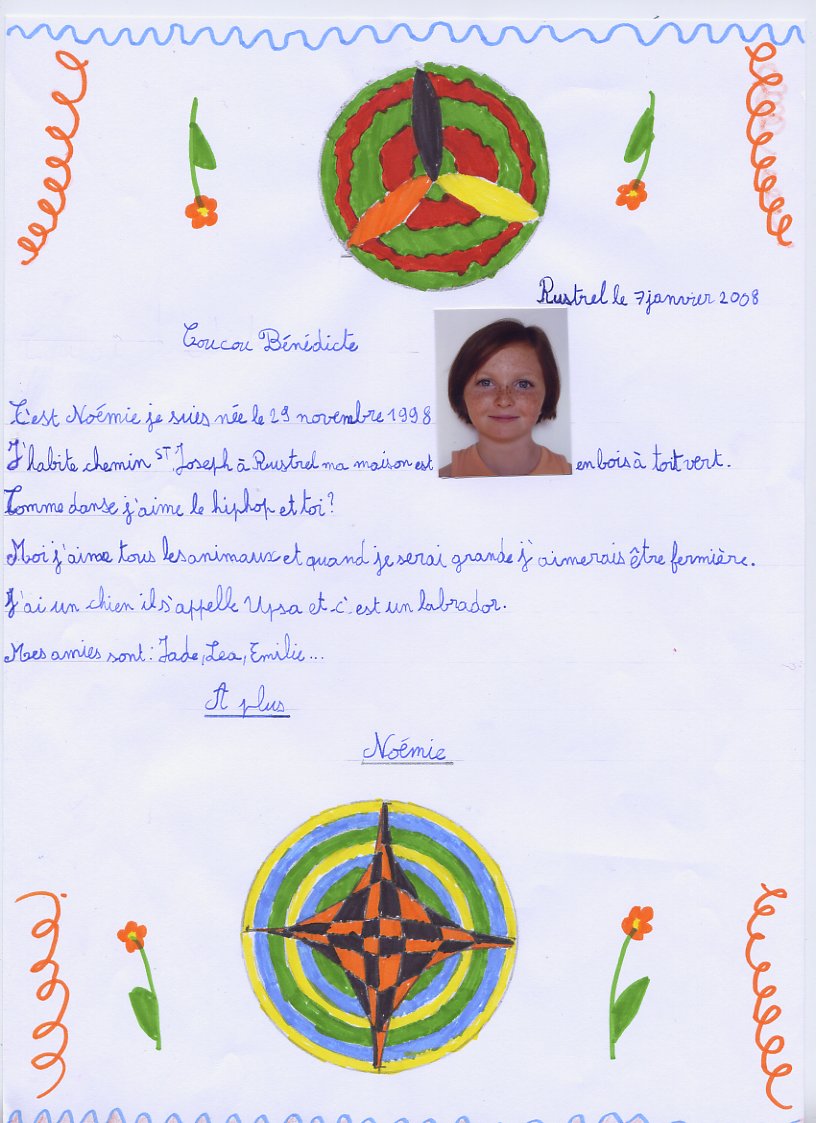 Rustrel le 7 janvier 2008
Coucou Bénédicte
C'est Noémie je suis née le 29 novembre 1998
J'habite chemin ST Joseph à Rustrel ma maison est en bois à toit vert.
Comme danse j'aime le hip hop et toi?
Moi j'aime tous les animaux et quand je serai grande j'aimerais être fermière.
J'ai un chien il s'appelle Upsa et c'est un labrador.
Mes amies sont : Jade, Lea, Emilie...
A plus
Noémie